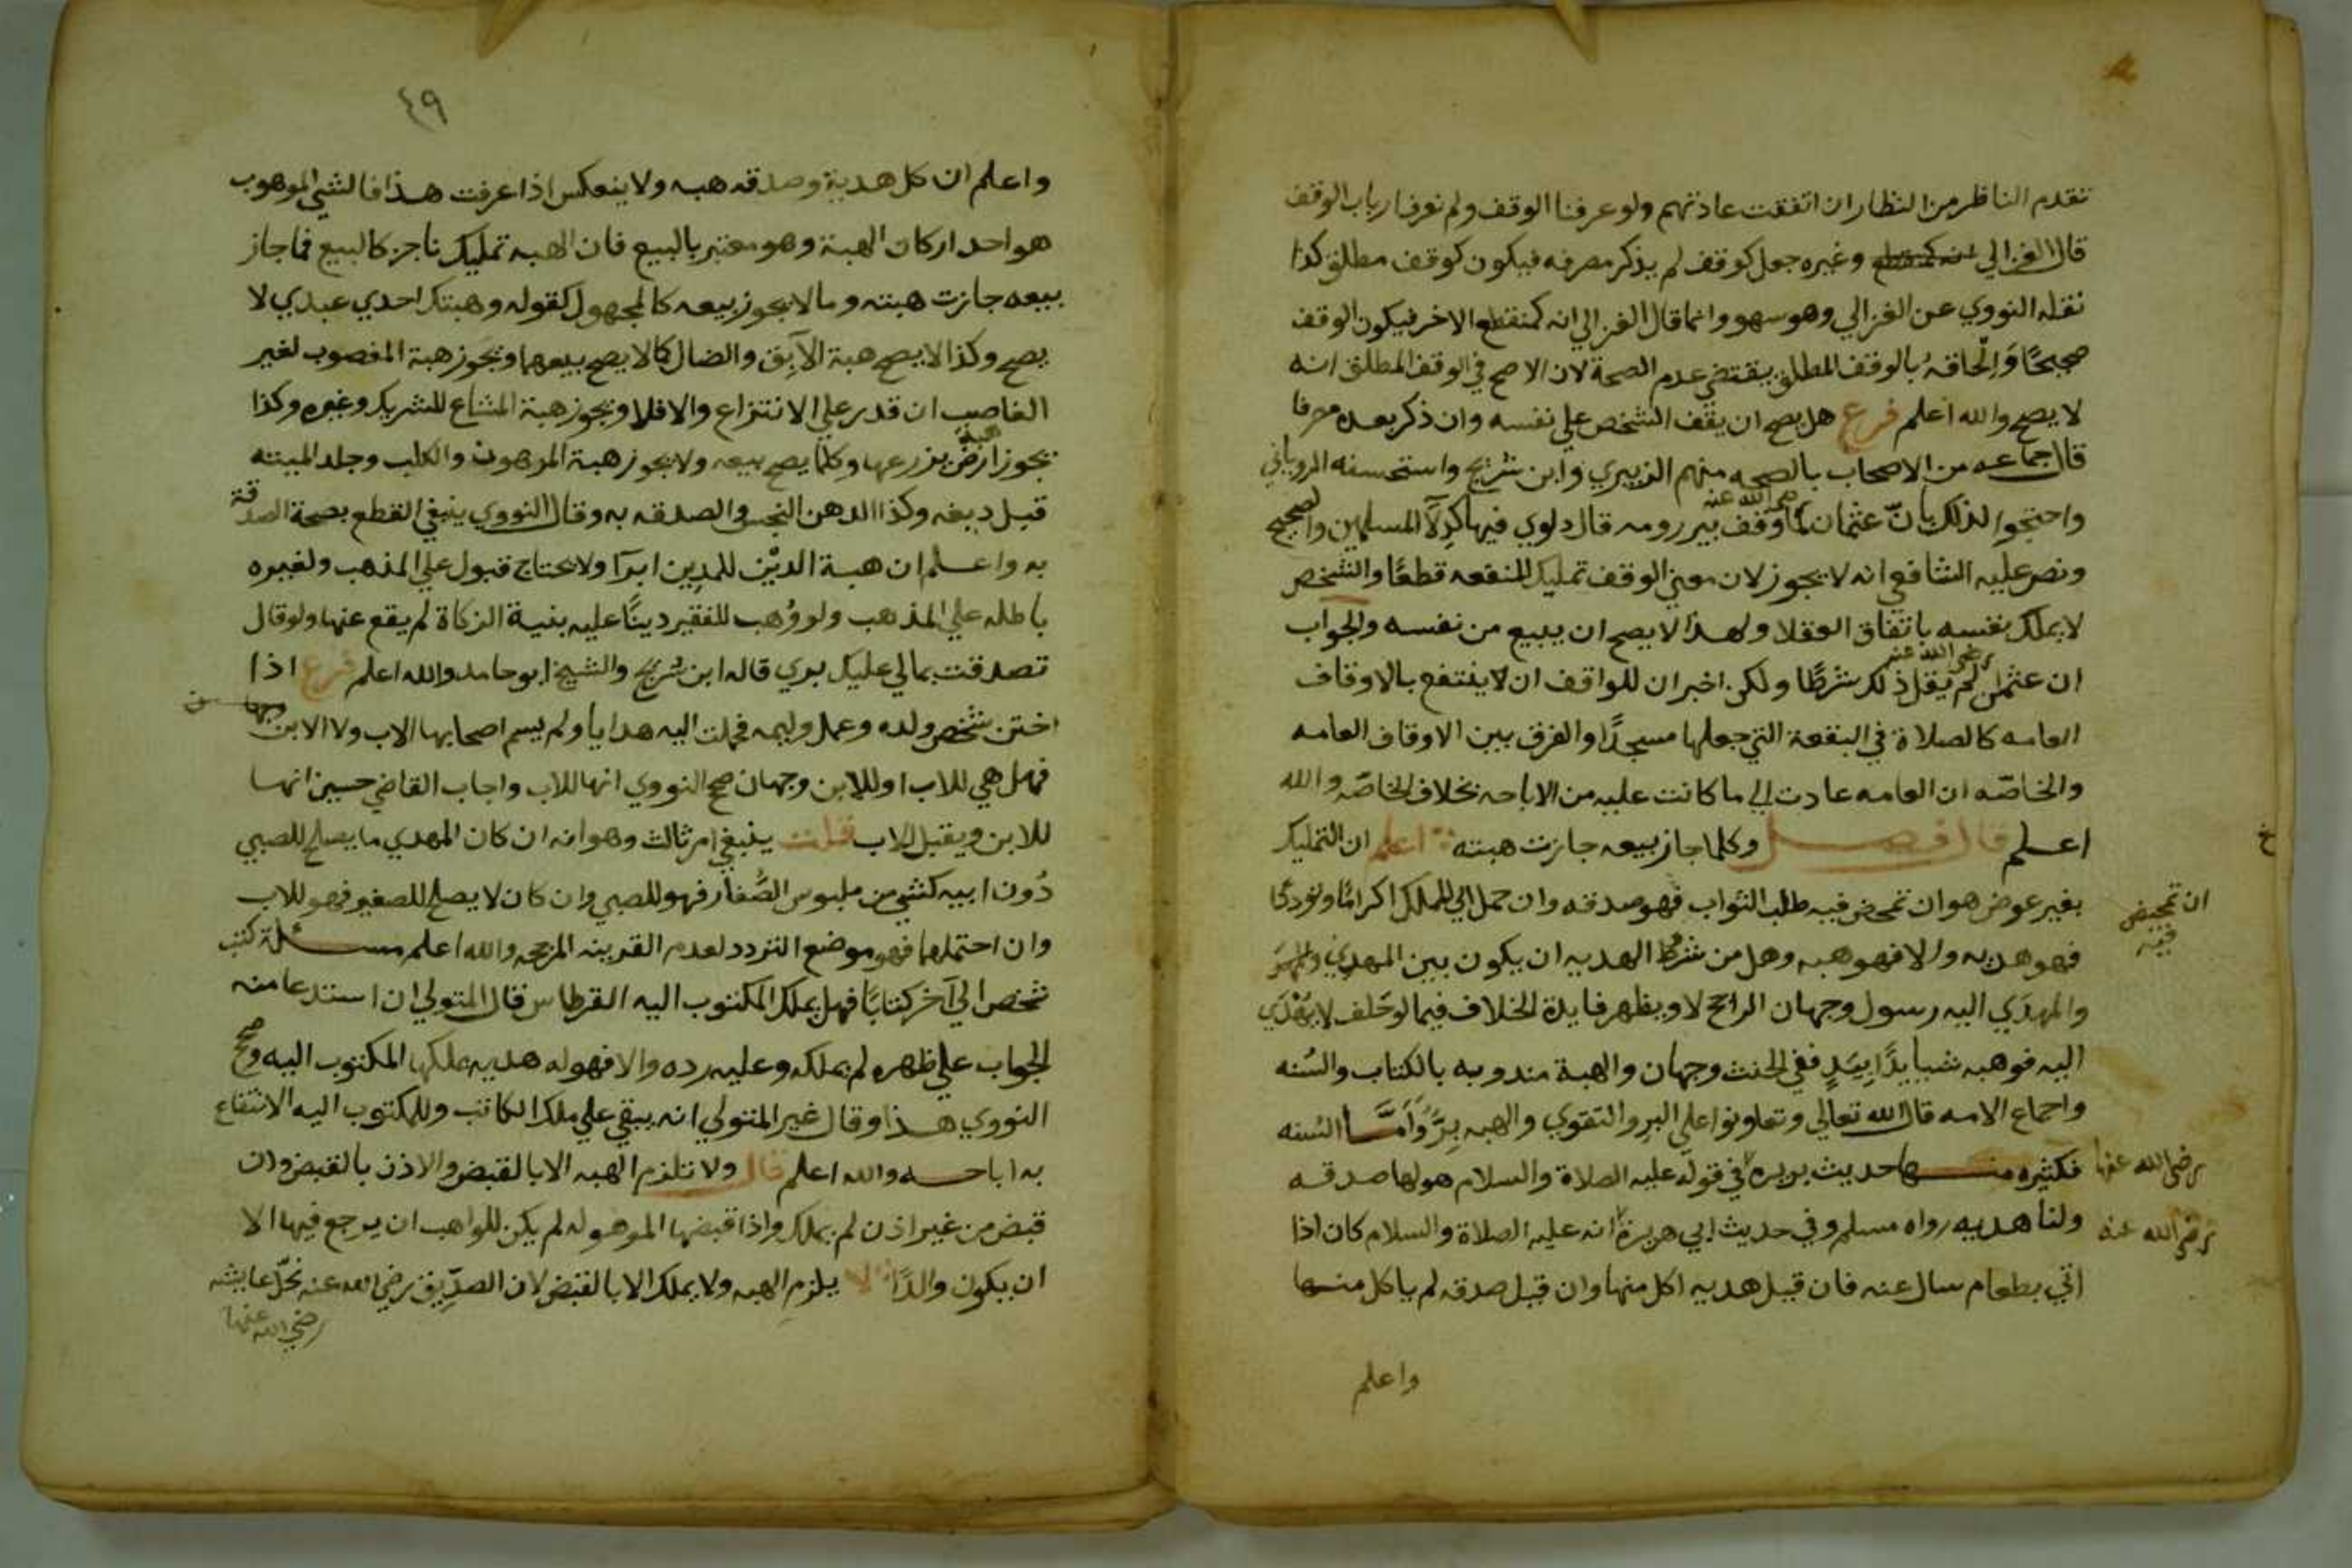 تقدم الناظر من النظار ان اتفقت عادتهم ولو عرفنا الوقف ولم نعرف ارباب الوقف
قال الغزالي انه كمنقطع وغيره جعل كوقف لم يذكر مصرفه فيكون كوقف مطلق كذا
نقله النووي عن الغزالي وهو سهو وانما قال الغزالي انه كمنقطع الاخر فيكون الوقف
صحيحًا وَالْحاقه بالوقف المطلق يقتضي عدم الصحة لان الاصح في الوقف المطلق انه
لا يصح والله اعلم فرع هل يصح ان يقف الشخص علي نفسه وان ذكر بعده مصرفا
قال جماعه من الاصحاب بالصحه منهم الزبيري وابن شريح واستحسنه الروياني
واحتجوا لذلك بأنّ عثمان رضي الله عنه لما وقف بير رومه قال دلوي فيها كدِلآ المسلمين والصحيح
ونص عليه الشافعي انه لا يجوز لان معني الوقف تمليك المنفعه قطعًا والشخص
لا يملك نفسه باتفاق العقلا ولهذا لا يصح ان يبيع من نفسه والجواب
ان عثمان رضي الله عنه لم يقل ذلك شرطًا ولكن اخبر ان للواقف ان لا ينتفع بالاوقاف
العامه كالصلاة في البقعة التي جعلها مسجدًا والفرق بين الاوقاف العامه
والخاصّه ان العامه عادت الي ما كانت عليه من الاباحه بخلاف الخاصّه والله
اعلم قال فصل وكلما جاز بيعه جازت هبته اعلم ان التمليك
بغير عوض هو ان تمحض فيه طلب الثواب فهو صدقه وان حمل الي المملك اكرامًا وتوددًا
ان تمحيض فيه
فهو هديه والا فهو هبه وهل من شرط الهديه ان يكون بين المهدِي
والمهدَي اليه رسول وجهان الراجح لا ويظهر فايدة الخلاف فيما لو حلف لا يهْدي
اليه فوهبه شيا يدًا بِيَدٍ ففي الحنث وجهان والهبة مندوبه بالكتاب والسُنه
واجماع الامه قال الله تعالي وتعاونوا علي البر والتقوي والهبه بِرٌّ وَأمّا السُنه
فكثيره منها حديث بريره رضي الله عنها في قوله عليه الصلاة والسلام هو لها صدقه
ولنا هديه رواه مسلم وفي حديث ابي هريرة رضي الله عنه انه عليه الصلاة والسلام كان اذا
اتي بطعام سال عنه فان قيل هديه اكل منها وان قيل صدقه لم ياكل منها
واعلم
٤٩
واعلم ان كل هدية وصدقه هبه ولا ينعكس اذا عرفت هذا فالشي الموهوب
هو احد اركان الهبة وهو معتبر بالبيع فان الهبه تمليك ناجز كالبيع فما جاز
بيعه جازت هبته وما لا يجوز بيعه كالمجهول كقوله وهبتك احدي عبدي لا
يصح وكذا لا يصح هبة الآبِق والضال كما لا يصح بيعهما وتجوز هبة المغصوب لغير
الغاصب ان قدر علي الانتزاع والا فلا ويجوز هبة المشاع للشريك وغيره وكذا
يجوز هبة ارض بزرعها وكلما يصح بيعه ولا يجوز هبة المرهون والكلب وجلد الميته
قبل دبغه وكذا الدهن النجس والصدقه به وقال النووي ينبغي القطع بصحة الصدقة
به واعلم ان هبة الديْن للمدِين ابرآ ولا يحتاج قبول علي المذهب ولغيره
باطله علي المذهب ولو وُهب للفقير دينًا عليه بنية الزكاة لم يقع عنها ولو قال
تصدقت بمالي عليك بري قاله ابن شريح والشيخ ابو حامد والله اعلم فرع اذا
اختن شخص ولده وعمل وليمه فحملت اليه هدايا ولم يسم اصحابها الاب ولا الابن
فهل هي للاب او للابن وجهان صحح النووي انها للاب واجاب القاضي حسين انها
للابن ويقبل الاب قلت ينبغي امر ثالث وهو انه ان كان المهدي ما يصلح للصبي
دُون ابيه كشي من ملبوس الصّغار فهو للصبي وان كان لا يصلح للصغير فهو للاب
وان احتملهما فهو موضع التردد لعدم القرينه المرجحه والله اعلم مسئلة كتب
شخص الي آخر كتابًا فهل يملك المكتوب اليه القرطاس قال المتولي ان استدعا منه
الجواب علي ظهره لم يملكه وعليه رده والا فهو له هديه يملكها المكتوب اليه وصحح
النووي هذا وقال غير المتولي انه يبقي علي ملك الكاتب وللمكتوب اليه الانتفاع
به اباحه والله اعلم قال ولا تلزم الهبه الا بالقبض والاذن بالقبض وان
قبض من غير اذن لم يملك واذا قبضها الموهوله لم يكن للواهب ان يرجع فيها الا
ان يكون والدًا لا يلزم الهبه ولا يملك الا بالقبض لان الصدّيق رضي الله عنه نحَل عايشه
رضي الله عنها